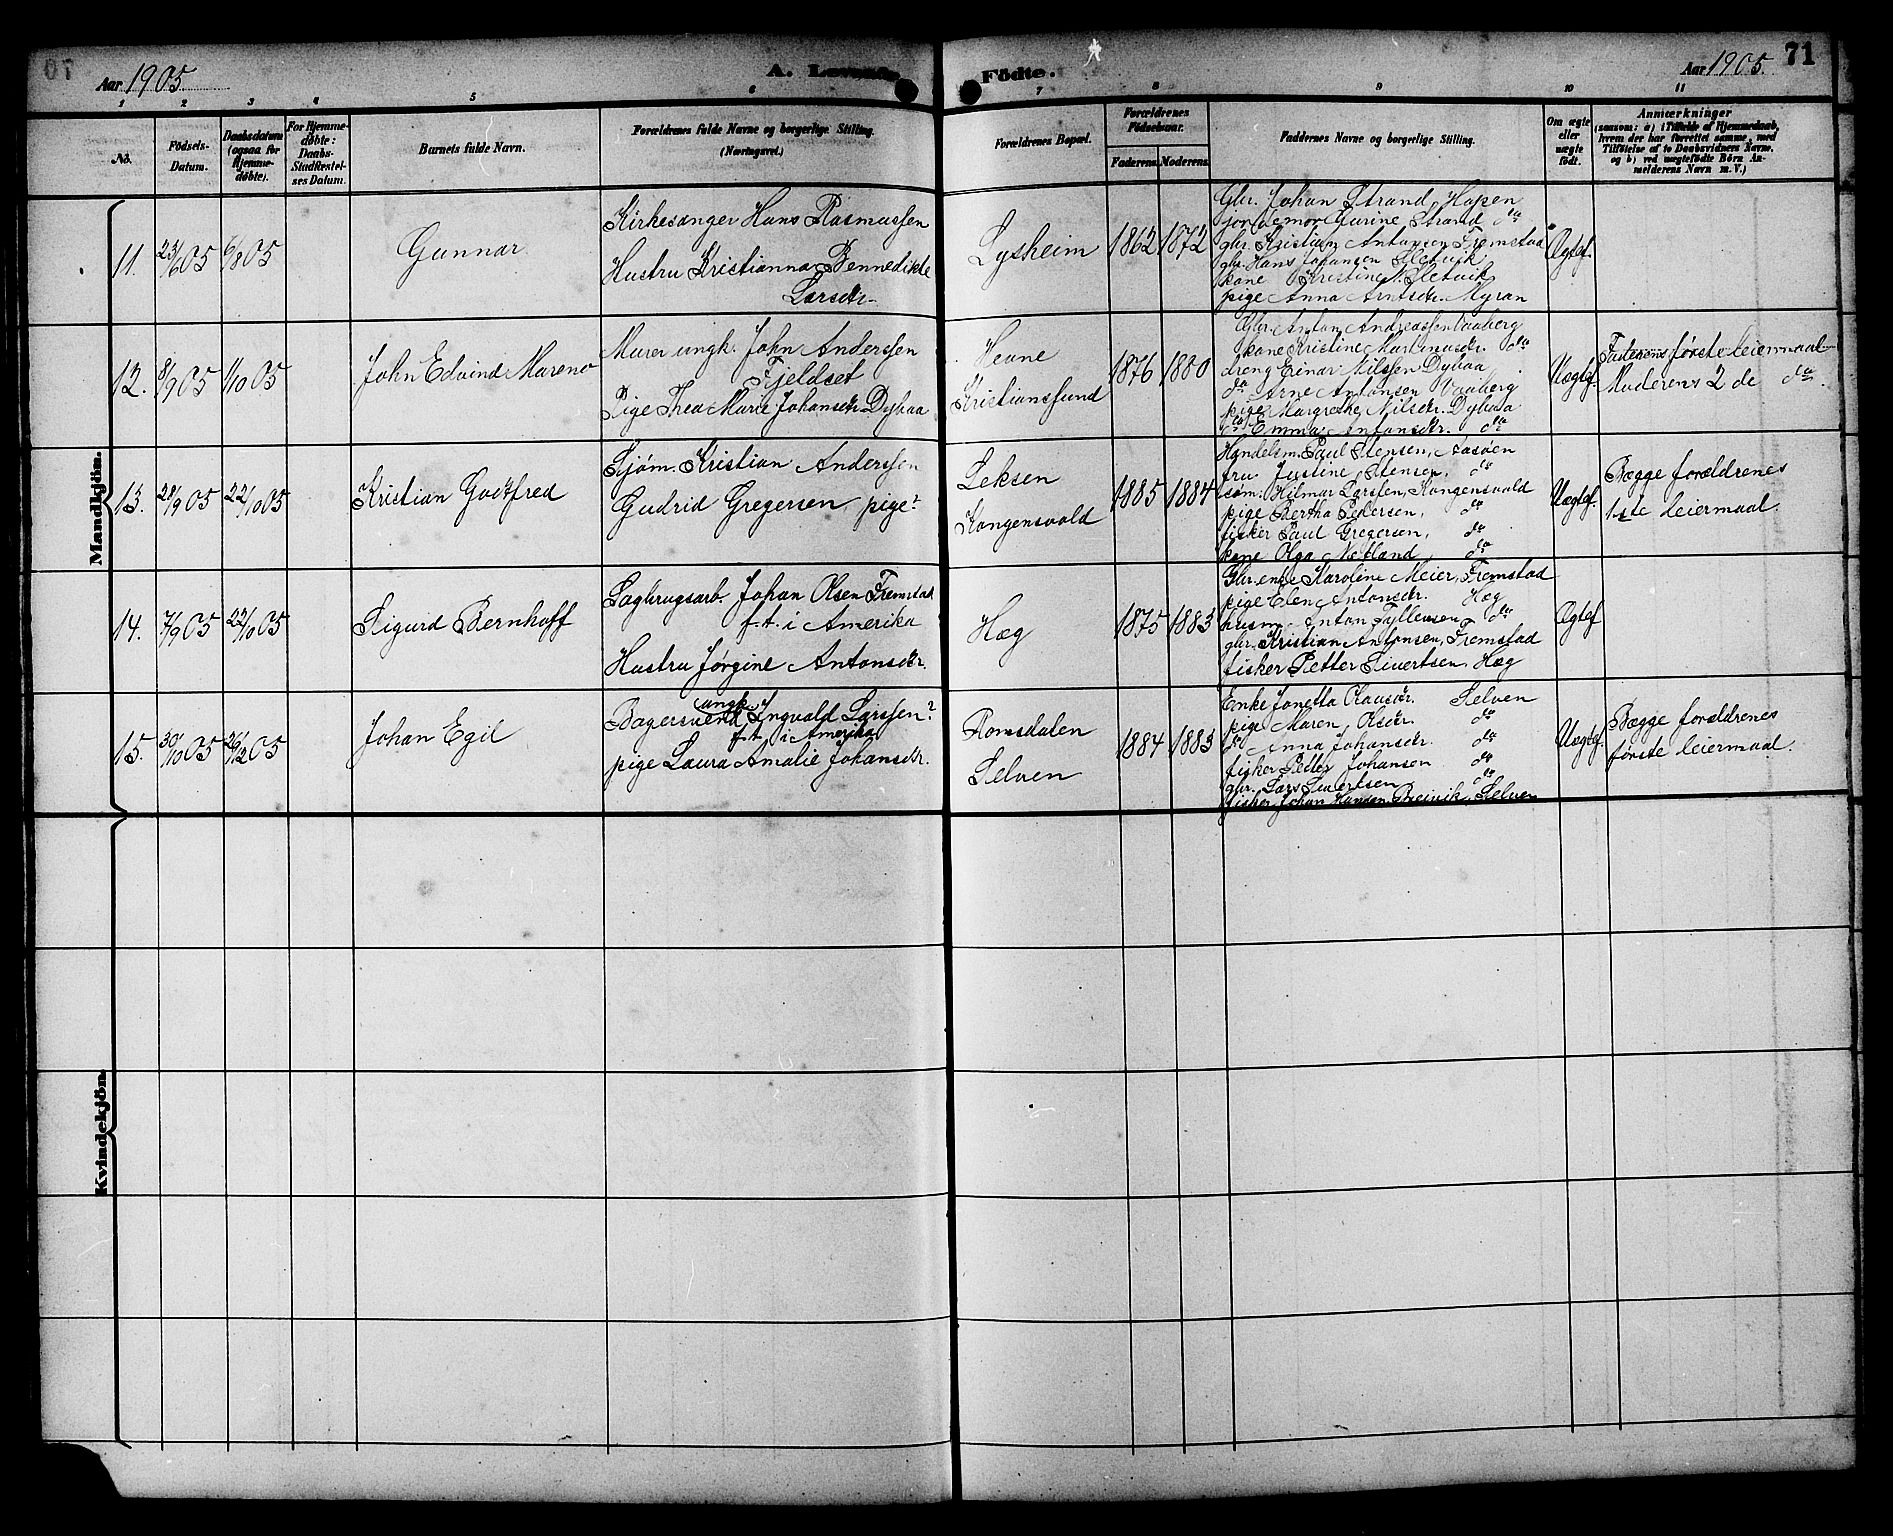 70
Aar 1905
A. Levende
Födte.
Aar 1905
71
1 2 3 4 5 6 7 8 9 10 11
No.
Födsels-
Datum.
Daabsdatum
(ogsaa for
Hjemme-
döbte).
For Hjemme-
döbte:
Daabs-
Stadfæstel-
ses Datum.
Barnets fulde Navn.
Forældrenes fulde Navne og borgerlige Stilling.
(Næringsvei.)
Forældrenes Bopæl.
Forældrenes
Födselsaar.
Faderens. Moderens.
Faddernes Navne og borgerlige Stilling.
Om ægte
eller
uægte
födt.
Anmærkninger
(saasom: a) i Tilfælde af Hjemmedaab,
hvem der har forrettet samme, med
Tilföielse af to Daabsvidners Navne,
og b) ved uægtefödte Börn An-
melderens Navn m. V.)
Mandkjön.
11.
23/6 05
6/8 05
Gunnar
Kirkesanger Hans Rasmussen
Hustru Kristianna Bennedikte
Larsdr.
Lysheim
1862 1872
Gbr. Johan Strand, Hopen
jordemor Gurine Strand do
gbr. Kristian Antonsen Fremstad
gbr. Hans Johansen Sletvik
kone Kristine Sletvik
pige Anna Arntsdr. Myran
Ægtef.
12.
8/9 05
1/10 05
John Edvind Mareno
Murer ungk. John Anderssen
Fjeldset
Pige Thea Marie Johansdr. Dybaa
Hevne
Kristianssund
1876 1880
Gbr. Anton Andreassen Vaaberg
kone Kristine Martinusdr. do
dreng Einar Nilssen Dybaa
do Arne Antonsen Vaaberg
pige Margrethe Nilsdr. Dybaa
do Emma Antonsdr. do
Uægtef.
Faderens første leiermaal
Moderens 2 de do
13.
28/9 05
22/10 05
Kristian Godtfred
Sjøm. Kristian Anderssen
Gudrid Gregersen pige?
Leksen
Kongensvold
1885 1884
Handelsm. Paul Stensen, Aasöen
fru Justine Stensen, do
søm. Hilmar Larssen, Kongensvold
pige Bertha Pedersen, do
fisker Paul Gregersen, do
kone Olga Nebland, do
Uægtef.
Begge forældrenes
1ste leiermaal.
14.
7/9 05
22/10 05
Sigurd Bernhoff
Sagbrugsarb. Johan Olsen Fremstad
f. t. i Amerika
Hustru Jørgine Antonsdr.
Hæg
1875 1883
Gbr. enke Karoline Meier, Fremstad
pige Elen Antonsdr. Hæg
husm. Anton Fyllemsen do
gbr. Kristian Antonsen, Fremstad
fisker Petter Sivertsen, Hæg
Ægtef
15.
30/10 05
26/12 05
Johan Egil
Bagersvend ungk. Ingvald Larssen?
f. t. i Amerika
pige Laura Amalie Johansdr.
Romsdalen
Selven
1884 1883
Enke Jonetta Olausdr. Selven
pige Maren Olsdr. do
do Anna Johansdr. do
fisker Petter Johansen do
gbr. Lars Sivertsen do
fisker Johan Hansen Breivik, Selven
Uægtef.
Begge forældrenes
første leiermaal.
Kvindekjön.